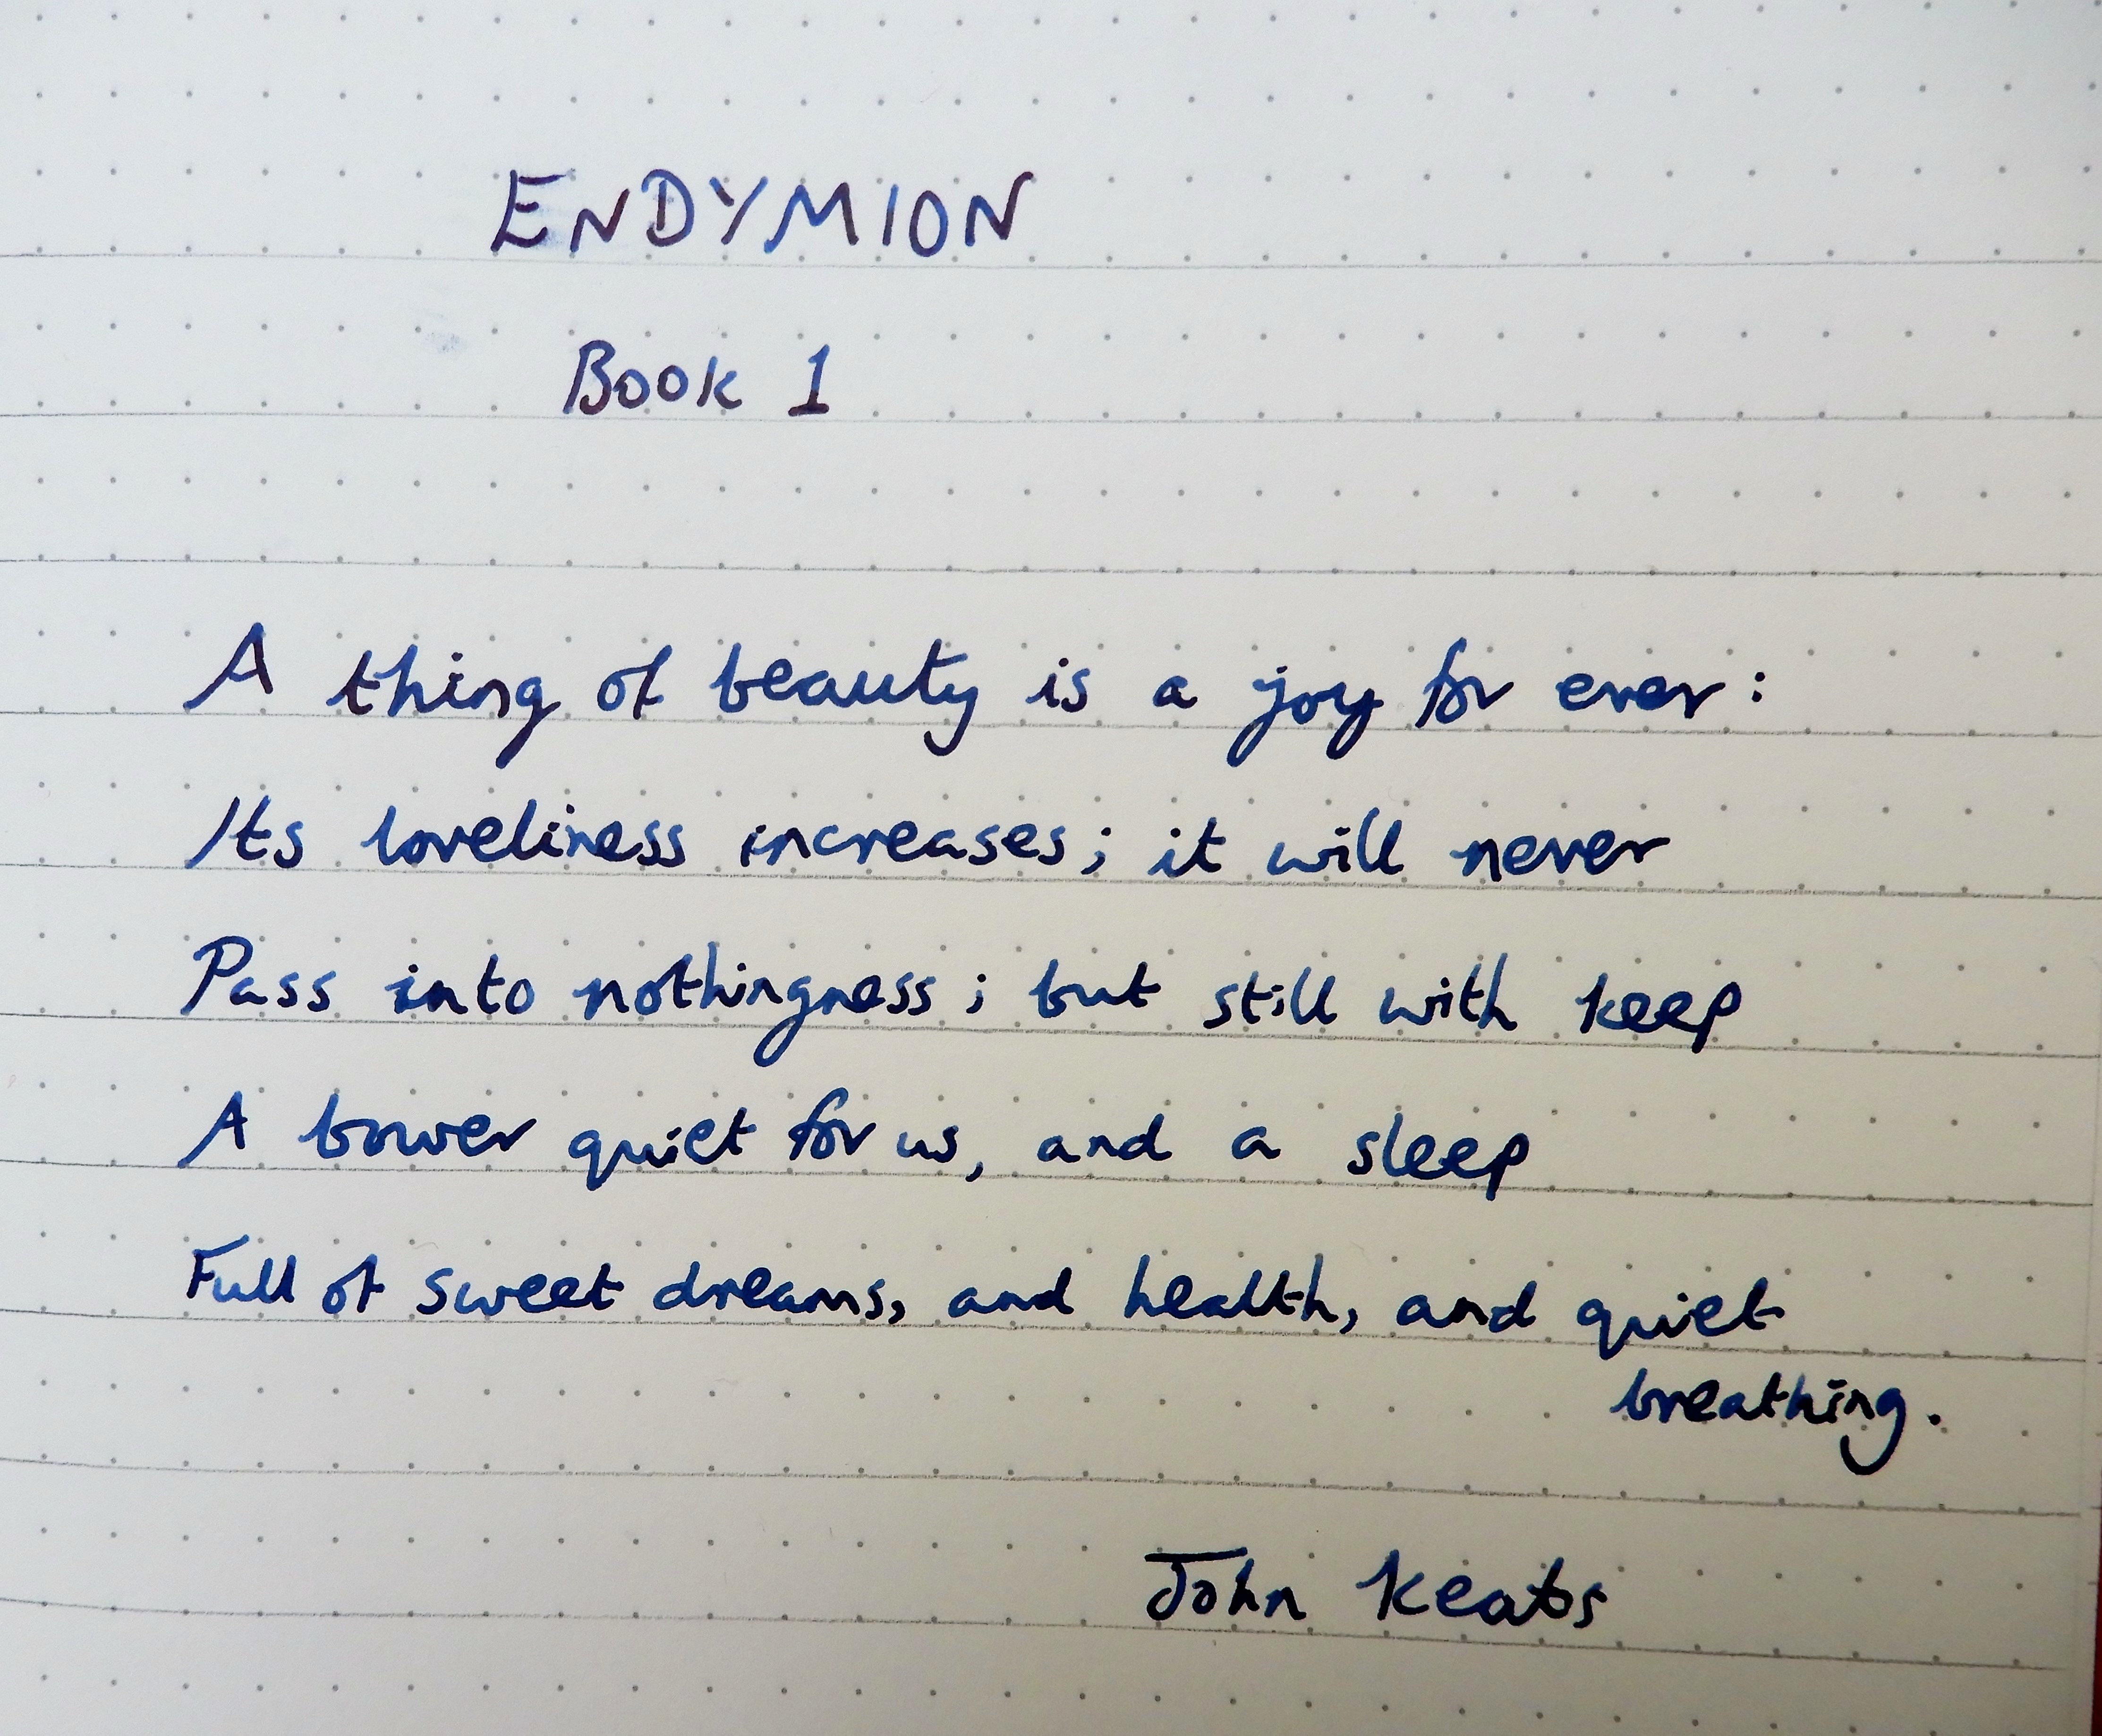 ENDYMION
Book 1
A thing of beauty is a joy for ever:
Its loveliness increases; it will never
Pass into nothingness; but still with keep
A bower quiet for us, and a sleep
Full of sweet dreams, and health, and quiet
breathing.
John Keats